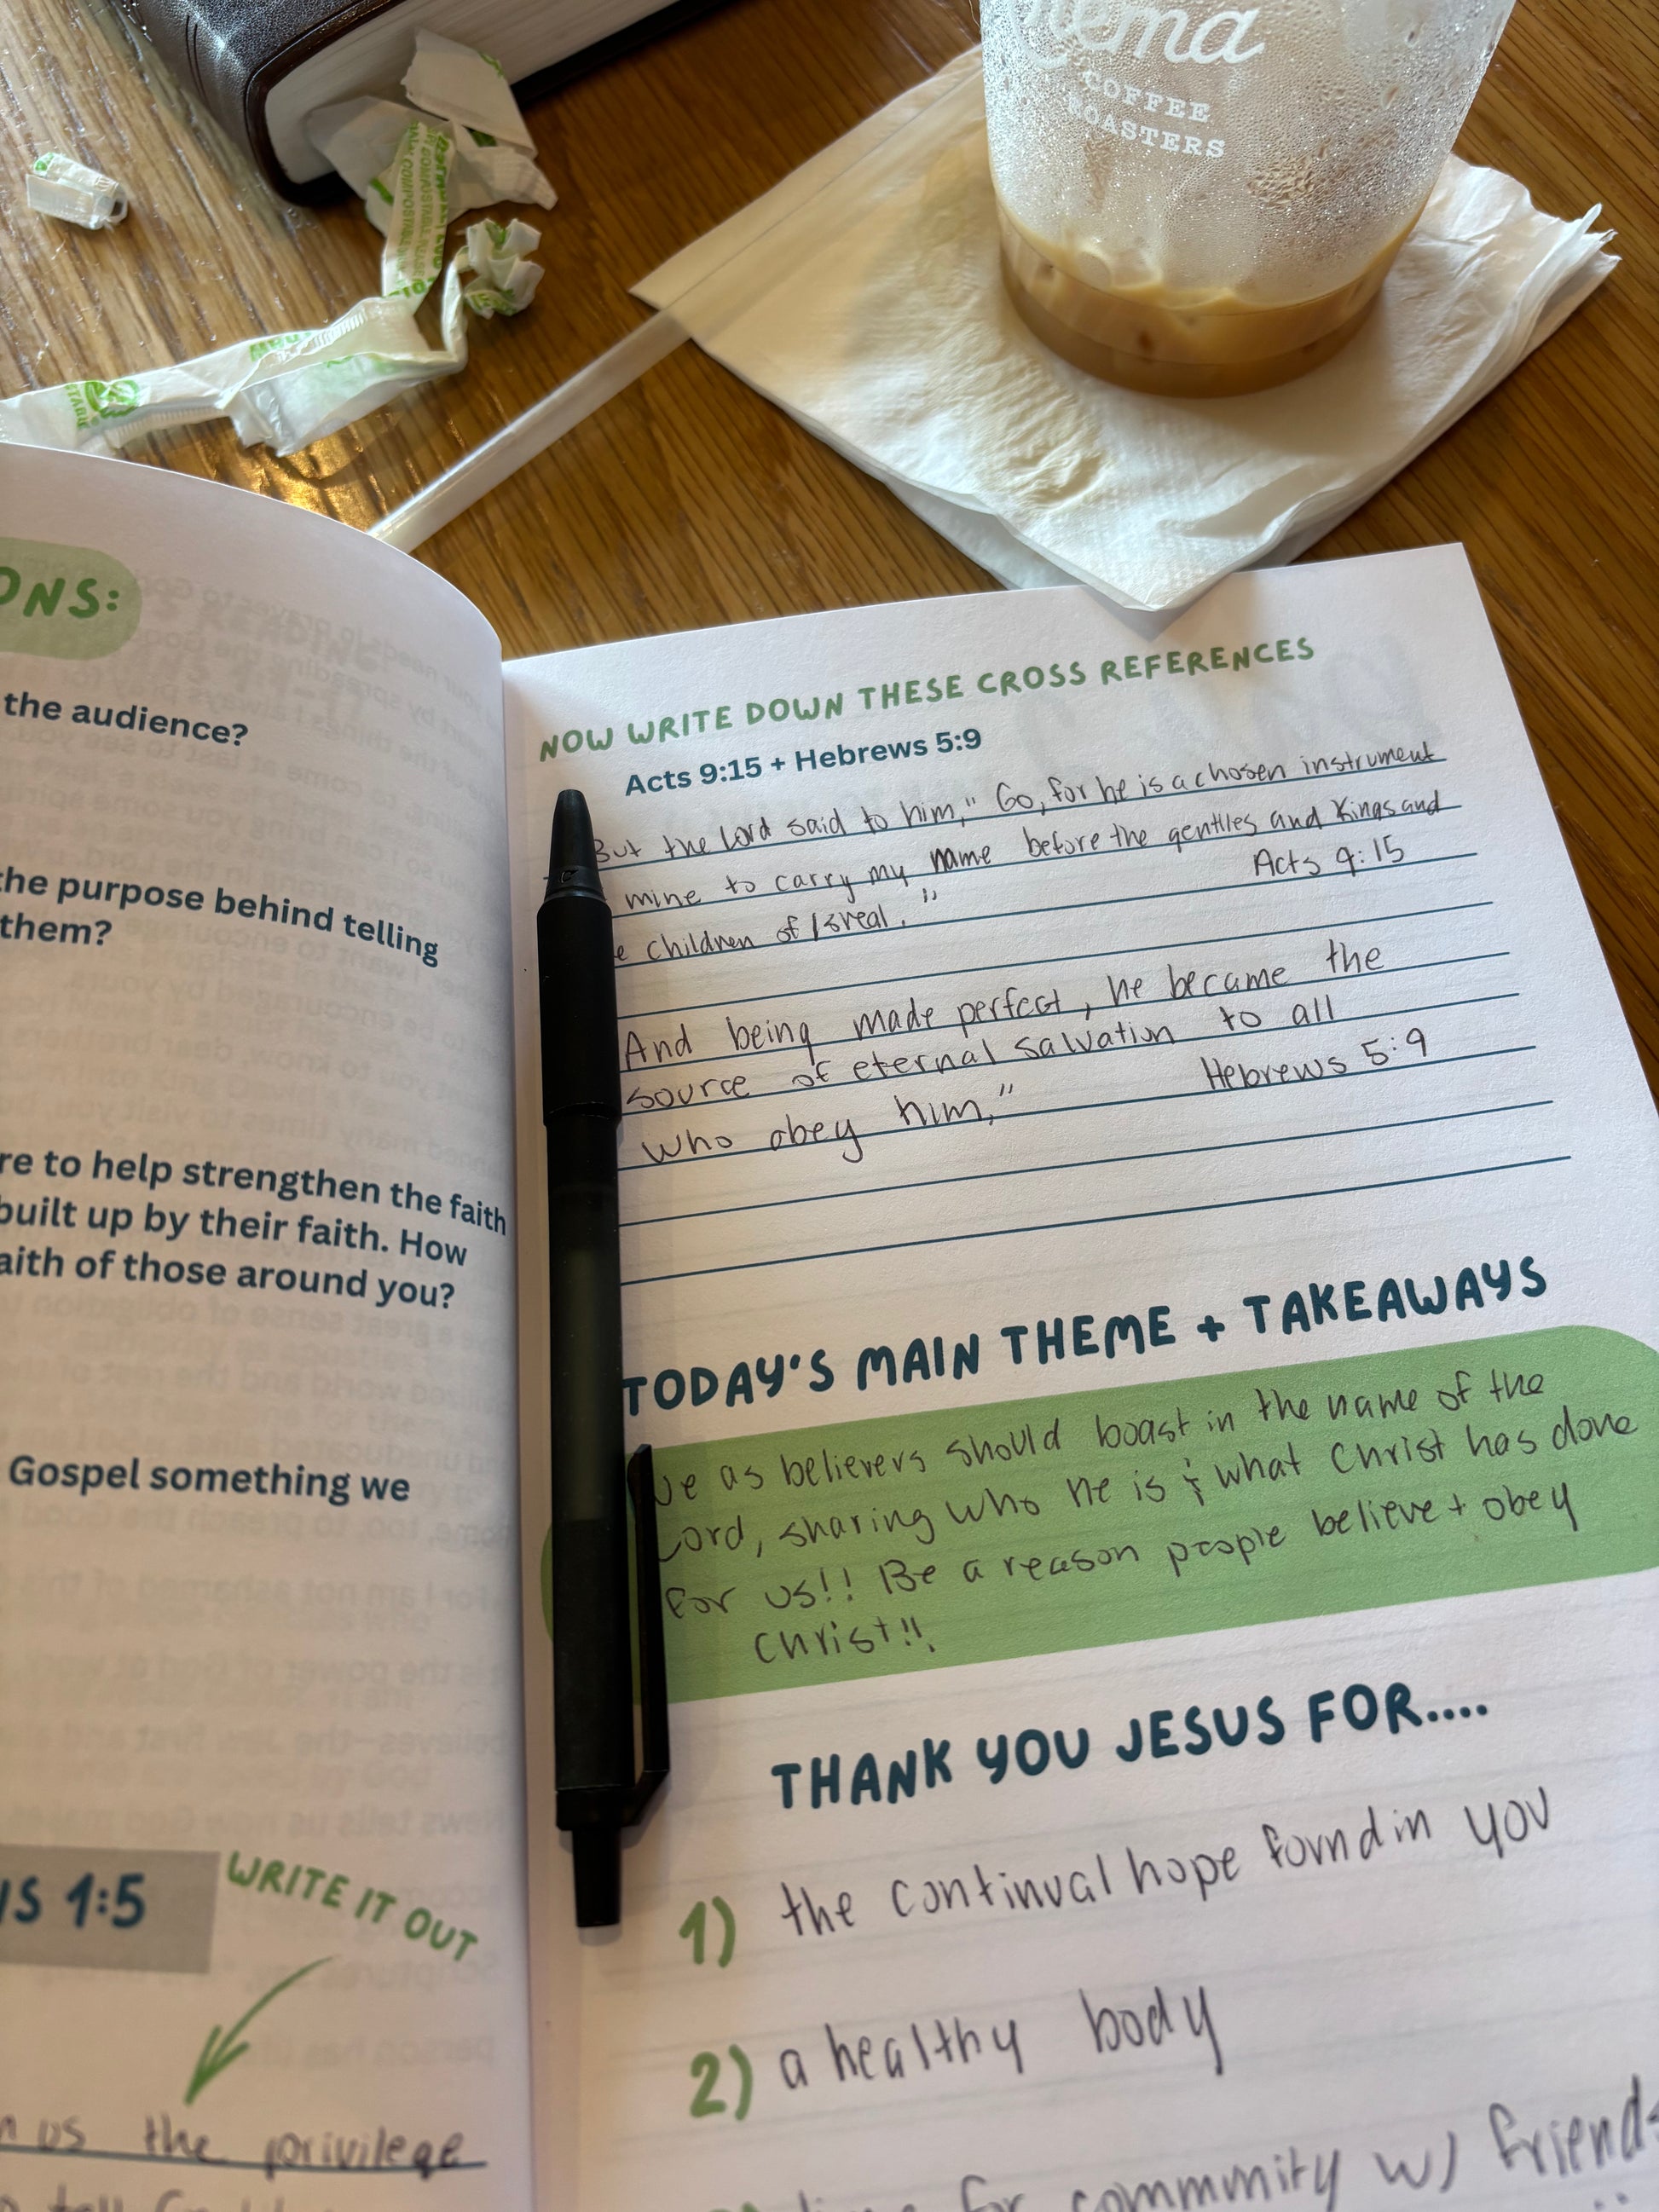 COFFEE
ROASTERS
ONS:
the audience?
the purpose behind telling
them?
re to help strengthen the faith
built up by their faith. How
aith of those around you?
Gospel something we
1:5
WRITE IT OUT
us the privilege
NOW WRITE DOWN THESE CROSS REFERENCES
Acts 9:15 + Hebrews 5:9
But the Lord said to him," Go, for he is a chosen instrument
mine to carry my name before the gentiles and Kings and
e children of Isreal." Acts 9:15
And being made perfect, he became the
source of eternal salvation to all
who obey him," Hebrews 5:9
TODAY'S MAIN THEME + TAKEAWAYS
we as believers should boast in the name of the
Lord, sharing who He is & what Christ has done
for us!! Be a reason people believe + obey
Christ!!
THANK YOU JESUS FOR....
1) the continual hope found in you
2) a healthy body
for community w/ friends